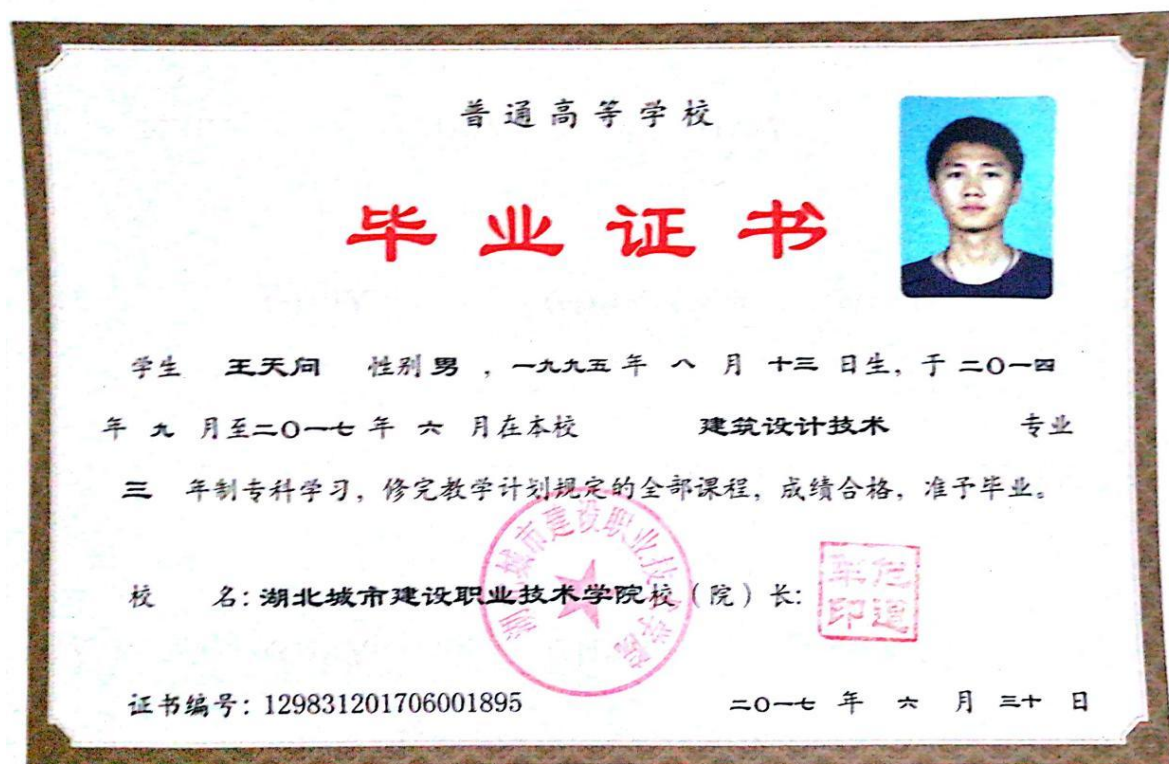 普通高等学校
毕业证书
学生 王天问 性别 男 ，一九九五 年 八 月 十三 日生，于 二〇一四
年 九 月至二〇一七 年 六 月在本校 建筑设计技术 专业
三 年制专科学习，修完教学计划规定的全部课程，成绩合格，准予毕业。
校 名：湖北城市建设职业技术学院 校（院）长：
证书编号：129831201706001895 二〇一七 年 六 月 三十 日